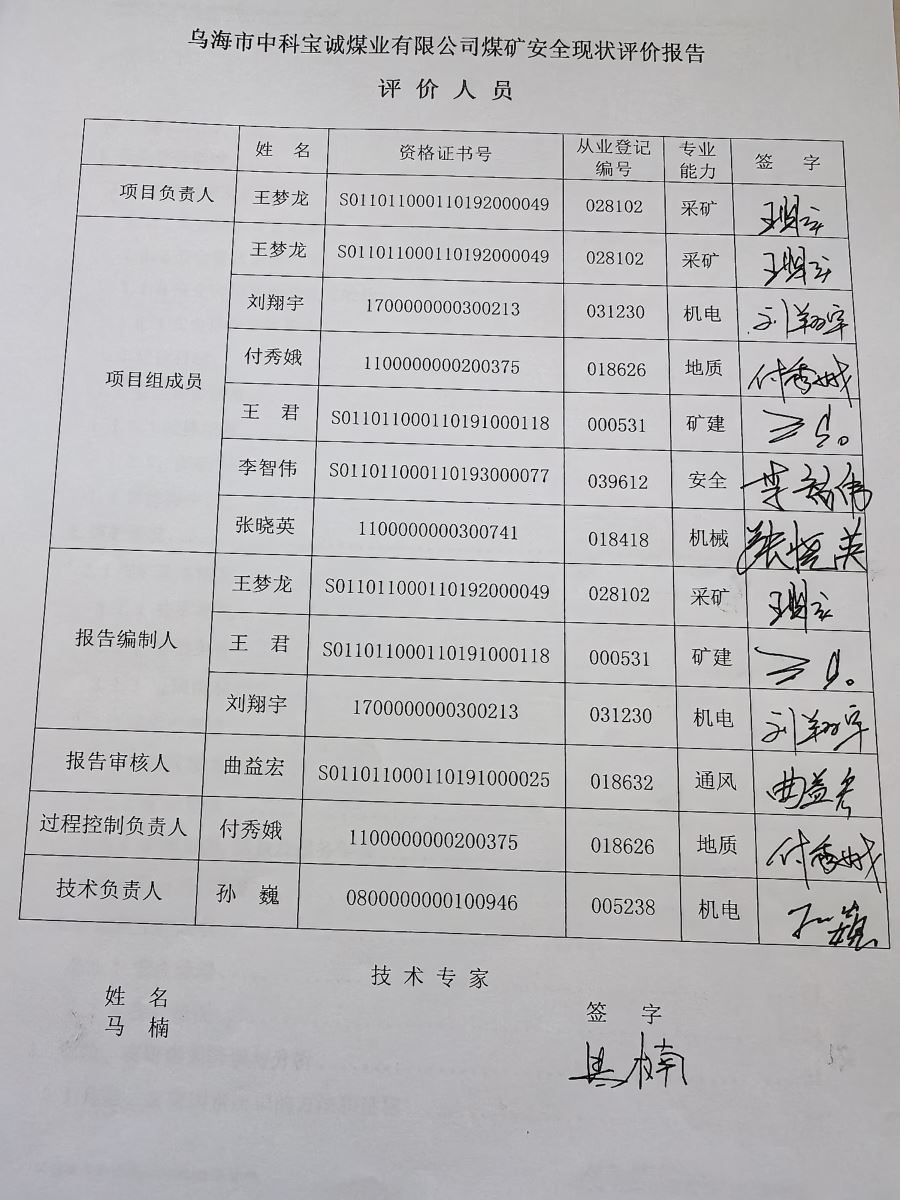 乌海市中科宝诚煤业有限公司煤矿安全现状评价报告
评价人员
姓 名 资格证书号 从业登记编号 专业能力 签 字
项目负责人 王梦龙 S011011000110192000049 028102 采矿
项目组成员 王梦龙 S011011000110192000049 028102 采矿
刘翔宇 1700000000300213 031230 机电 刘翔宇
付秀娥 1100000000200375 018626 地质 付秀娥
王 君 S011011000110191000118 000531 矿建
李智伟 S011011000110193000077 039612 安全 李智伟
张晓英 1100000000300741 018418 机械 张晓英
报告编制人 王梦龙 S011011000110192000049 028102 采矿
王 君 S011011000110191000118 000531 矿建
刘翔宇 1700000000300213 031230 机电 刘翔宇
报告审核人 曲益宏 S011011000110191000025 018632 通风 曲益宏
过程控制负责人 付秀娥 1100000000200375 018626 地质 付秀娥
技术负责人 孙 巍 0800000000100946 005238 机电 孙巍
技术专家
姓 名 签 字
马 楠 马楠